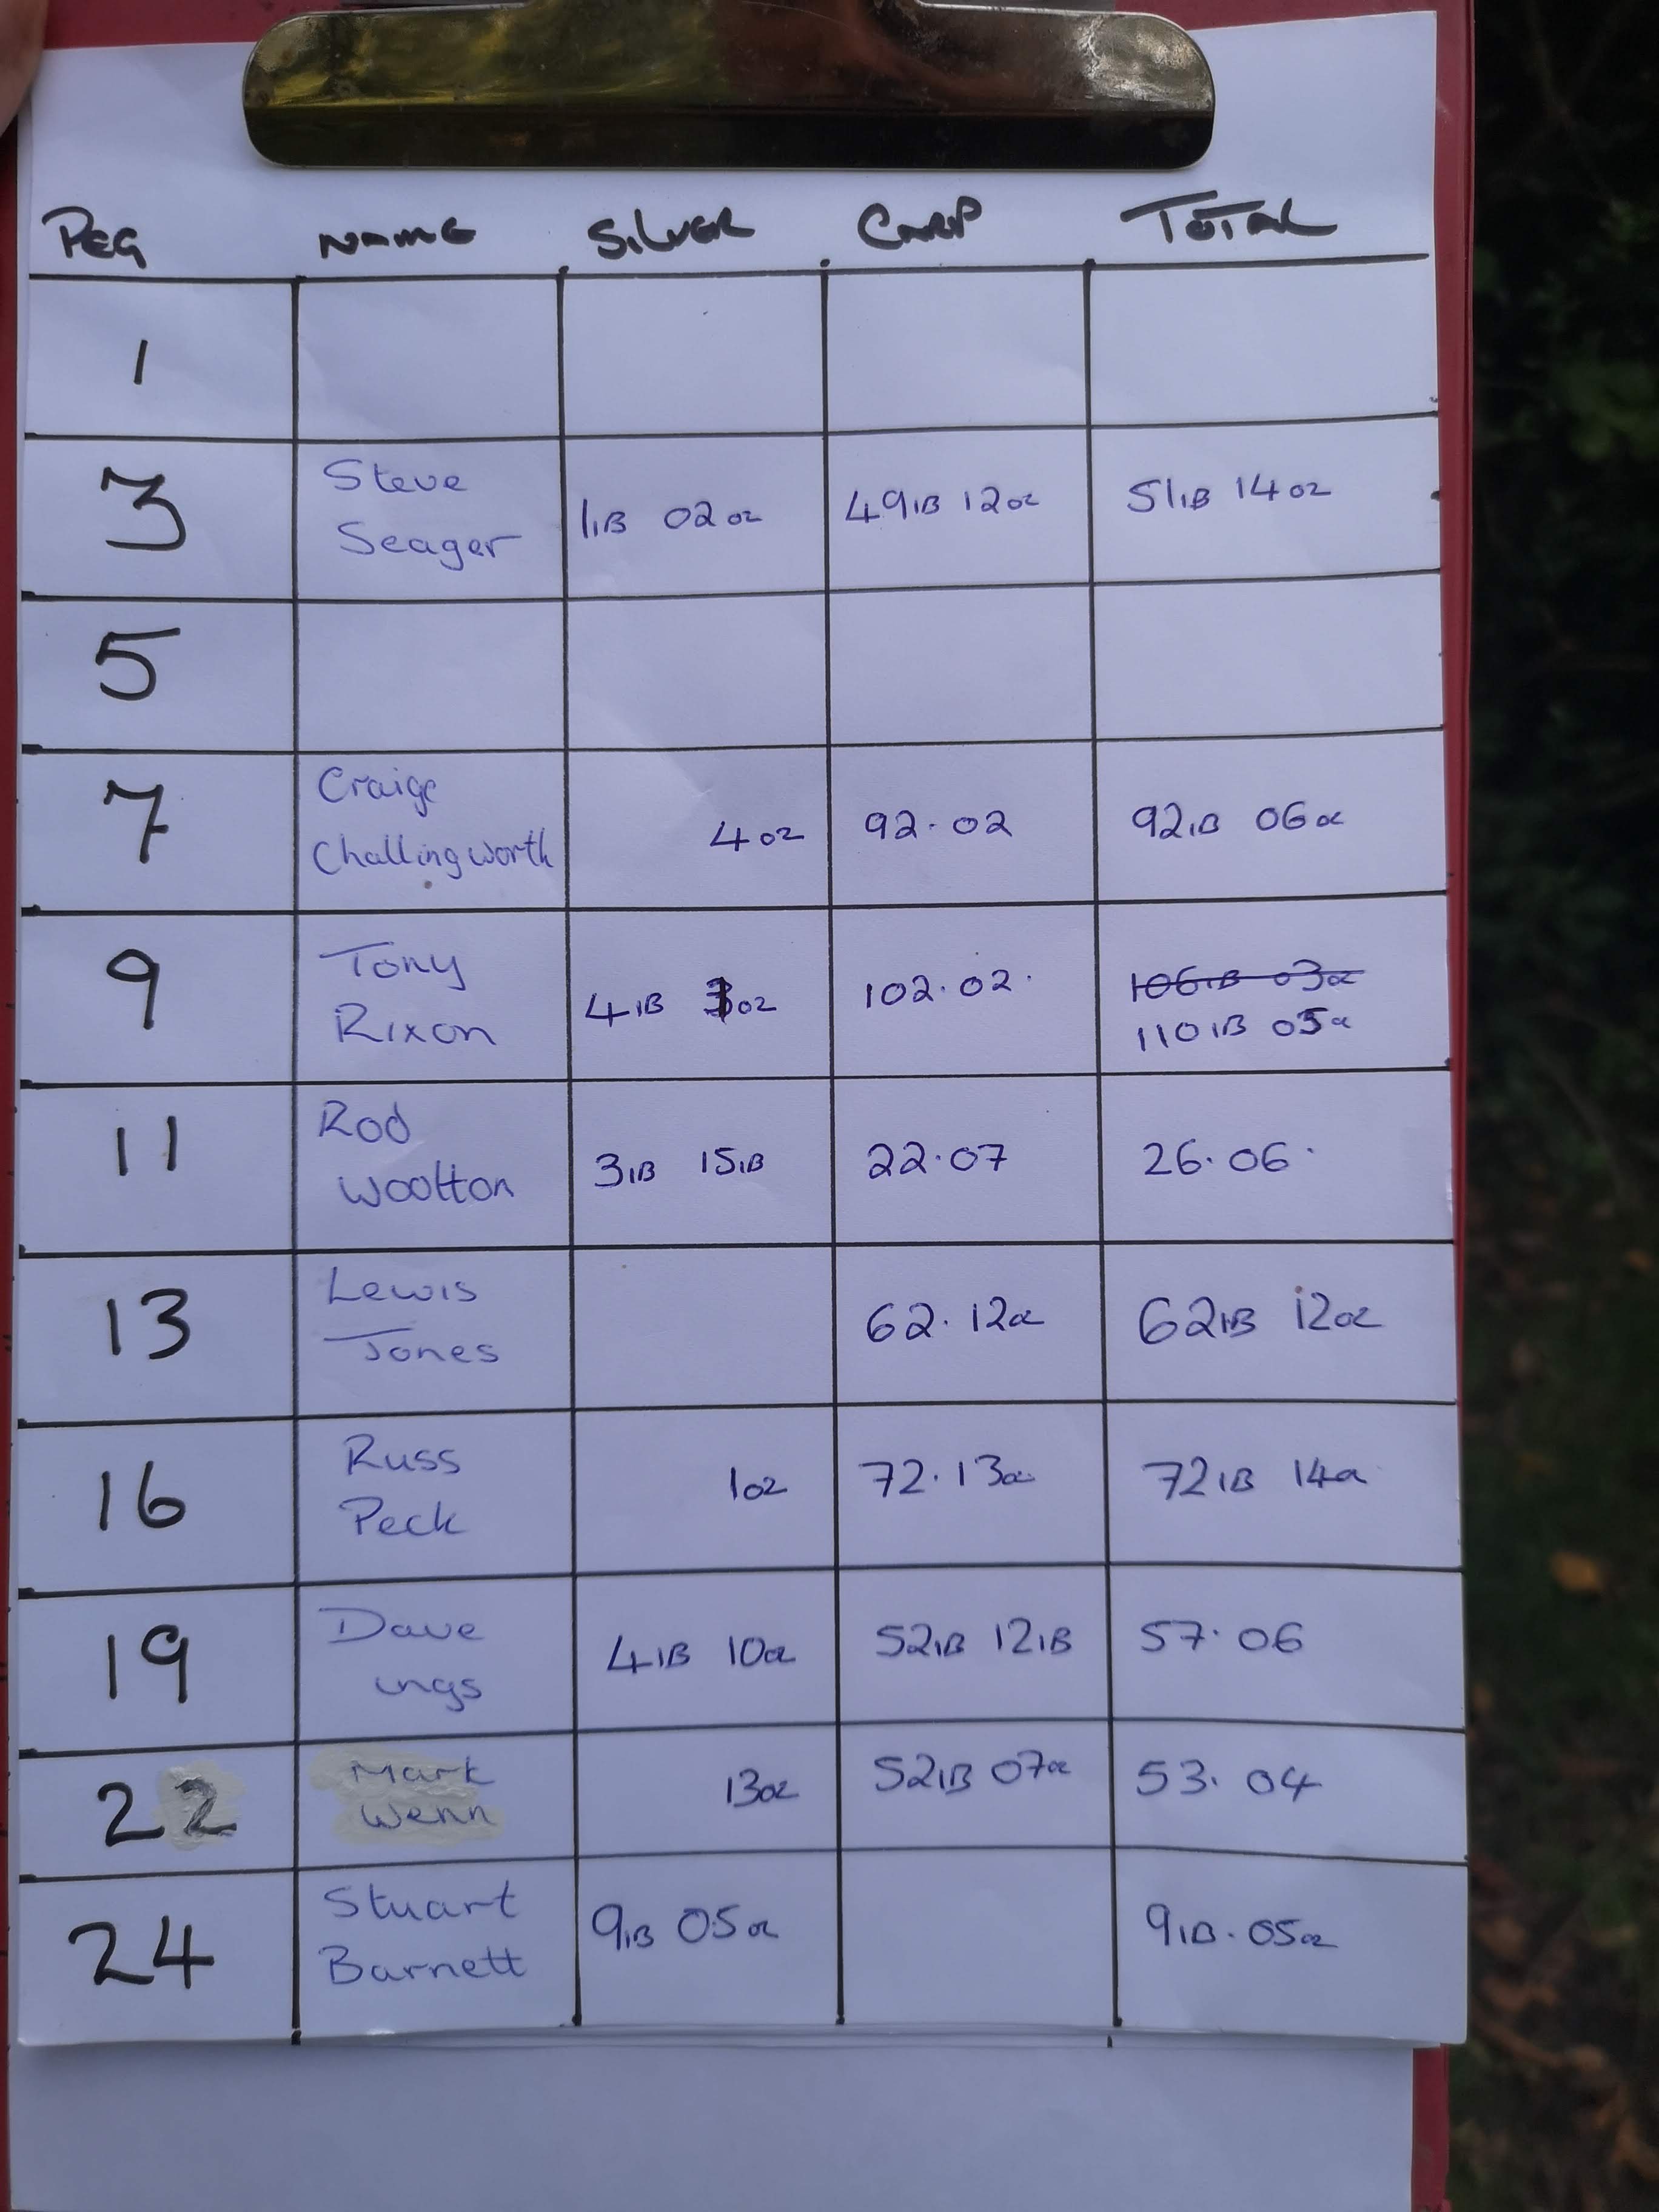 PEG NAME SILVER CARP TOTAL
1
3 Steve Seager 1lB 02oz 49lB 12oz 51lB 14oz
5
7 Craige Challingworth 4oz 92.02 92lB 06oz
9 Tony Rixon 4lB 3oz 102.02. 106lB 03oz
110lB 05oz
11 Rod Wootton 3lB 15lB 22.07 26.06.
13 Lewis Jones 62.12oz 62lB 12oz
16 Russ Peck 1oz 72.13oz 72lB 14oz
19 Dave ings 4lB 10oz 52lB 12lB 57.06
22 Mark Wenn 13oz 52lB 07oz 53.04
24 Stuart Barnett 9lB 05oz 9lB.05oz